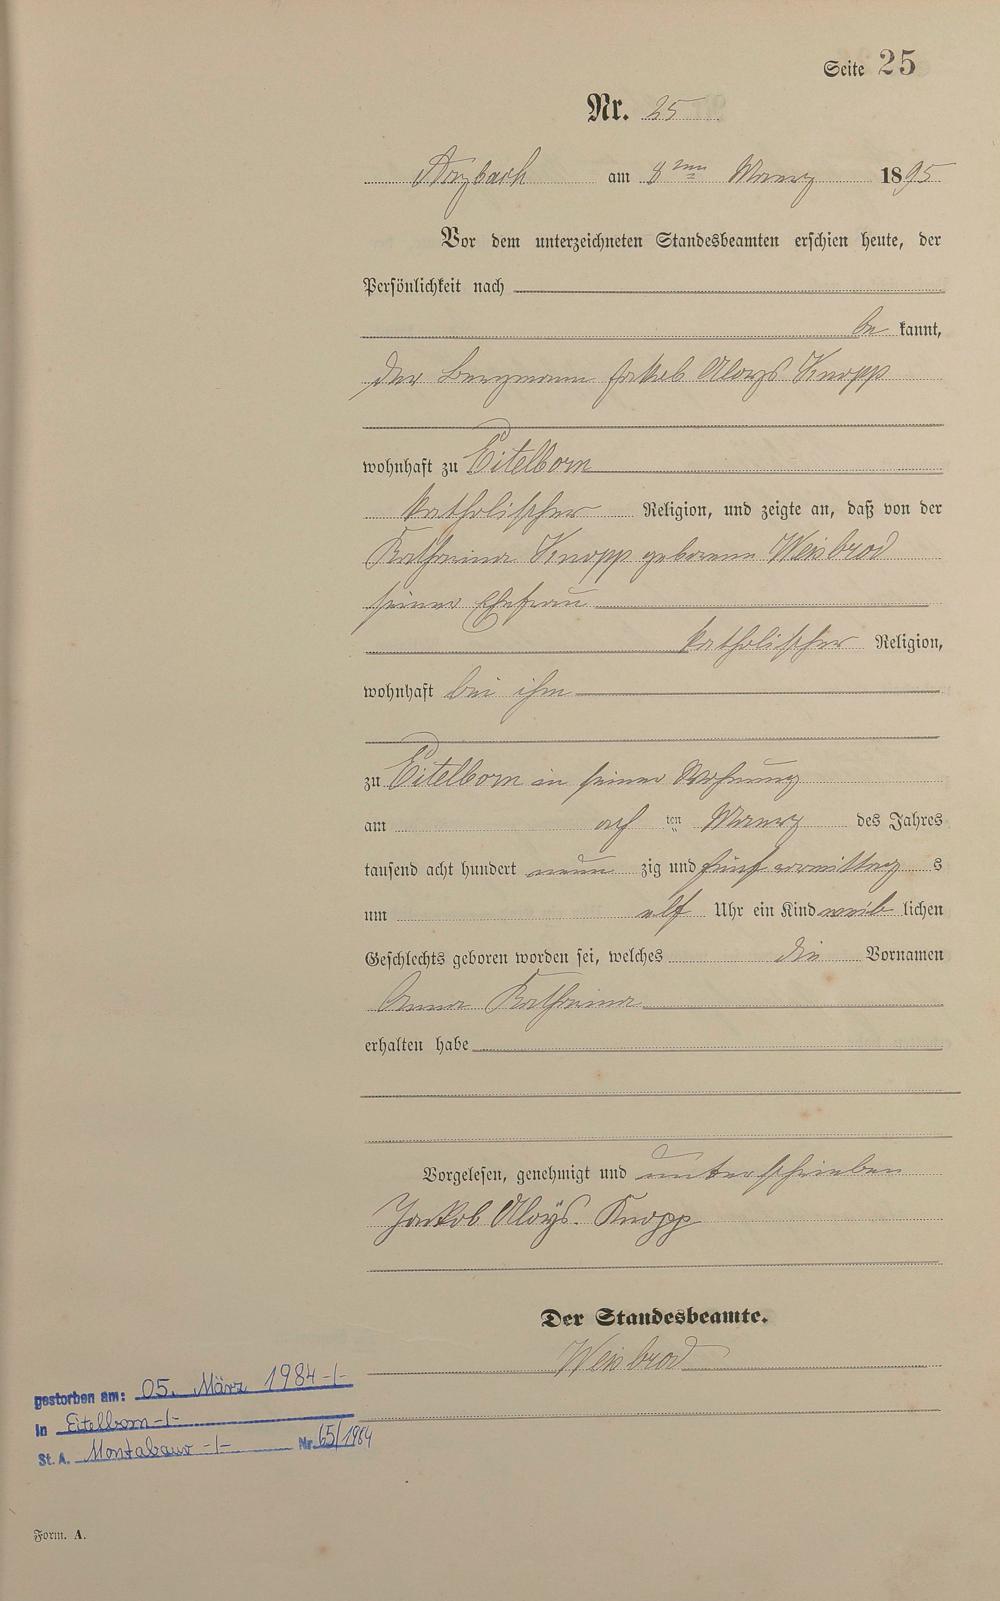 Seite 25
Nr. 25
Arzbach am 8ten Maerz 1895
Vor dem unterzeichneten Standesbeamten erschien heute, der
Persönlichkeit nach
be kannt,
der Bergmann Jakob Aloys Knopp
wohnhaft zu Eitelborn
katholischer Religion, und zeigte an, daß von der
Katharina Knopp geborene Weisbrod
seiner Ehefrau
katholischer Religion,
wohnhaft bei ihm
zu Eitelborn in seiner Wohnung
am acht ten Maerz des Jahres
tausend acht hundert neun zig und fünf vormittag s
um elf Uhr ein Kind weib lichen
Geschlechts geboren worden sei, welches die Vornamen
Anna Katharina
erhalten habe
Vorgelesen, genehmigt und unterschrieben
Jakob Aloÿs. Knopp
Der Standesbeamte.
Weisbrod
gestorben am: 05. März 1984 -/-
in Eitelborn -/-
St. A. Montabaur -/- Nr. 65/1984
Form. A.